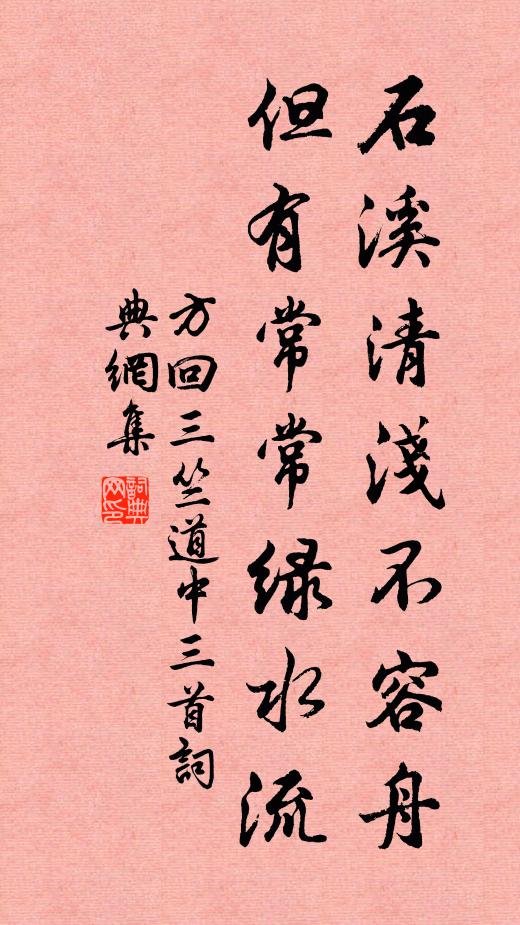 石溪清淺不容舟
但有常常绿水流
方回三竺道中三首詞
典網集
詞典
网印